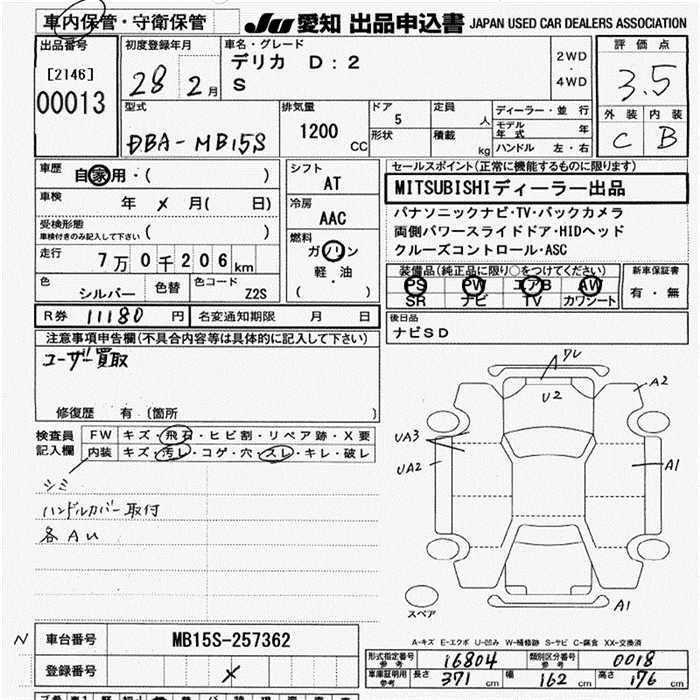 車内保管・守衛保管
JU 愛知 出品申込書 JAPAN USED CAR DEALERS ASSOCIATION
出品番号 初度登録年月 車名・グレード 評価点
[2146] 28年 2月 デリカ D:2 2WD・4WD 3.5
00013 S
型式 排気量 ドア 定員 ディーラー・並行 外装 内装
DBA-MB15S 1200 CC 5 人 モデル年式 年 C B
形状 積載 kg ハンドル 左・右
車歴 自家用・( ) シフト AT セールスポイント(正常に機能するものに限ります)
MITSUBISHIディーラー出品
車検 年 メ 月( 日) 冷房 AAC
パナソニックナビ・TV・バックカメラ
受検形態 車検付きのみ記入して下さい ( )
両側パワースライドドア・HIDヘッド
燃料 ガソリン 軽・油 ( )
クルーズコントロール・ASC
走行 7万0千206km
装備品(純正品に限り○をつけてください) 新車保証書
色 シルバー 色替 色コード Z2S
PS PW エアB AW 有・無
SR ナビ TV カワシート
R券 11180 円 名変通知期限 月 日
後日品
ナビSD
注意事項申告欄(不具合内容等は具体的に記入して下さい)
ユーザー買取
修復歴 有 (箇所 )
検査員記入欄 FW キズ・飛石・ヒビ割・リペア跡・X要
内装 キズ・汚レ・コゲ・穴・スレ・キレ・破レ
シミ
ハンドルカバー取付
各AU
ワレ
U2
A2
UA3
UA2
A1
A1
スペア
A-キズ E-エクボ U-凹み W-補修跡 S-サビ C-腐食 XX-交換済
N 車台番号 MB15S-257362
登録番号 メ
形式指定番号 参考 16804 類別区分番号 参考 0018
車庫証明用 参考 長さ 371 cm 幅 162 cm 高さ 176 cm